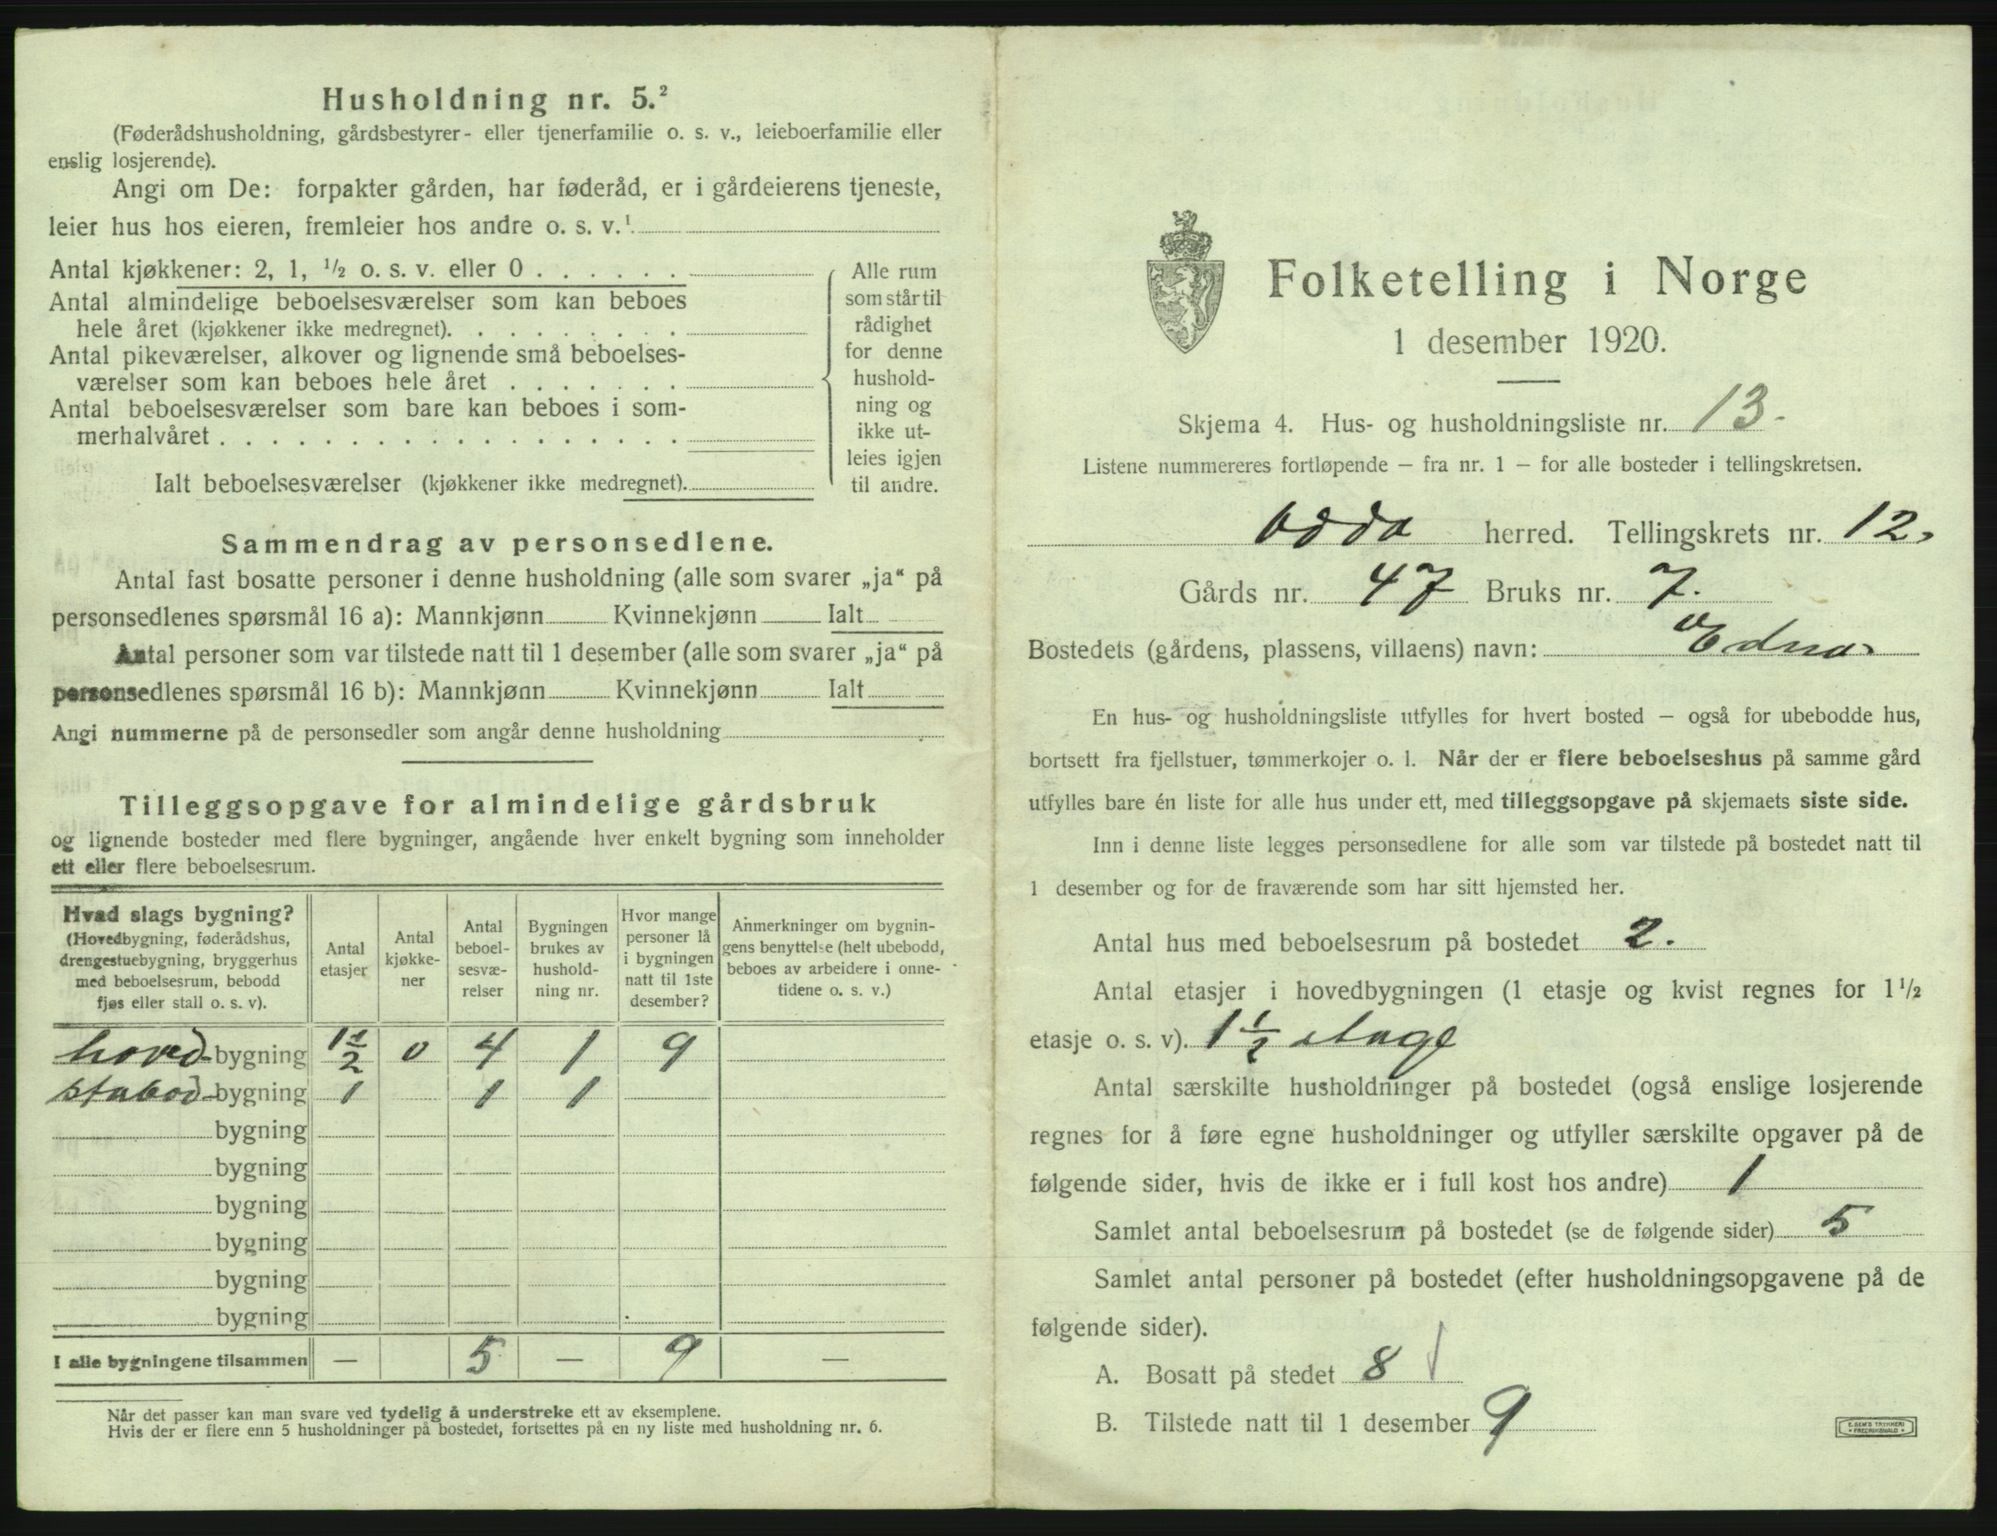 Husholdning nr. 5.²
(Føderådshusholdning, gårdsbestyrer- eller tjenerfamilie o. s. v., leieboerfamilie eller
enslig losjerende).
Angi om De: forpakter gården, har føderåd, er i gårdeierens tjeneste,
leier hus hos eieren, fremleier hos andre o. s. v.¹
Antal kjøkkener: 2, 1, ½ o. s. v. eller 0 . . . . . .
Antal almindelige beboelsesværelser som kan beboes
hele året (kjøkkener ikke medregnet). . . . . . . . .
Antal pikeværelser, alkover og lignende små beboelses-
værelser som kan beboes hele året . . . . . . .
Antal beboelsesværelser som bare kan beboes i som-
merhalvåret . . . . . . . . . . . . . . . . . .
Ialt beboelsesværelser (kjøkkener ikke medregnet).
Alle rum
som står til
rådighet
for denne
hushold-
ning og
ikke ut-
leies igjen
til andre.
Sammendrag av personsedlene.
Antal fast bosatte personer i denne husholdning (alle som svarer „ja“ på
personsedlenes spørsmål 16 a): Mannkjønn Kvinnekjønn Ialt
Antal personer som var tilstede natt til 1 desember (alle som svarer „ja“ på
personsedlenes spørsmål 16 b): Mannkjønn Kvinnekjønn Ialt
Angi nummerne på de personsedler som angår denne husholdning
Tilleggsopgave for almindelige gårdsbruk
og lignende bosteder med flere bygninger, angående hver enkelt bygning som inneholder
ett eller flere beboelsesrum.
Hvad slags bygning?
(Hovedbygning, føderådshus,
drengestuebygning, bryggerhus
med beboelsesrum, bebodd
fjøs eller stall o. s. v).
Antal
etasjer
Antal
kjøkke-
ner
Antal
beboel-
sesvæ-
relser
Bygningen
brukes av
hushold-
ning nr.
Hvor mange
personer lå
i bygningen
natt til 1ste
desember?
Anmerkninger om bygnin-
gens benyttelse (helt ubebodd,
beboes av arbeidere i onne-
tidene o. s. v.)
hoved-bygning 1½ 0 4 1 9
stabod-bygning 1 1 1
bygning
bygning
bygning
bygning
bygning
bygning
I alle bygningene tilsammen — 5 — 9 —
Når det passer kan man svare ved tydelig å understreke ett av eksemplene.
Hvis der er flere enn 5 husholdninger på bostedet, fortsettes på en ny liste med husholdning nr. 6.
Folketelling i Norge
1 desember 1920.
Skjema 4. Hus- og husholdningsliste nr. 13.
Listene nummereres fortløpende – fra nr. 1 – for alle bosteder i tellingskretsen.
Odda herred. Tellingskrets nr. 12.
Gårds nr. 47 Bruks nr. 7.
Bostedets (gårdens, plassens, villaens) navn: Edna
En hus- og husholdningsliste utfylles for hvert bosted – også for ubebodde hus,
bortsett fra fjellstuer, tømmerkojer o. l. Når der er flere beboelseshus på samme gård
utfylles bare én liste for alle hus under ett, med tilleggsopgave på skjemaets siste side.
Inn i denne liste legges personsedlene for alle som var tilstede på bostedet natt til
1 desember og for de fraværende som har sitt hjemsted her.
Antal hus med beboelsesrum på bostedet 2.
Antal etasjer i hovedbygningen (1 etasje og kvist regnes for 1½
etasje o. s. v). 1½ etage
Antal særskilte husholdninger på bostedet (også enslige losjerende
regnes for å føre egne husholdninger og utfyller særskilte opgaver på de
følgende sider, hvis de ikke er i full kost hos andre) 1
Samlet antal beboelsesrum på bostedet (se de følgende sider) 5
Samlet antal personer på bostedet (efter husholdningsopgavene på de
følgende sider).
A. Bosatt på stedet 8
B. Tilstede natt til 1 desember 9